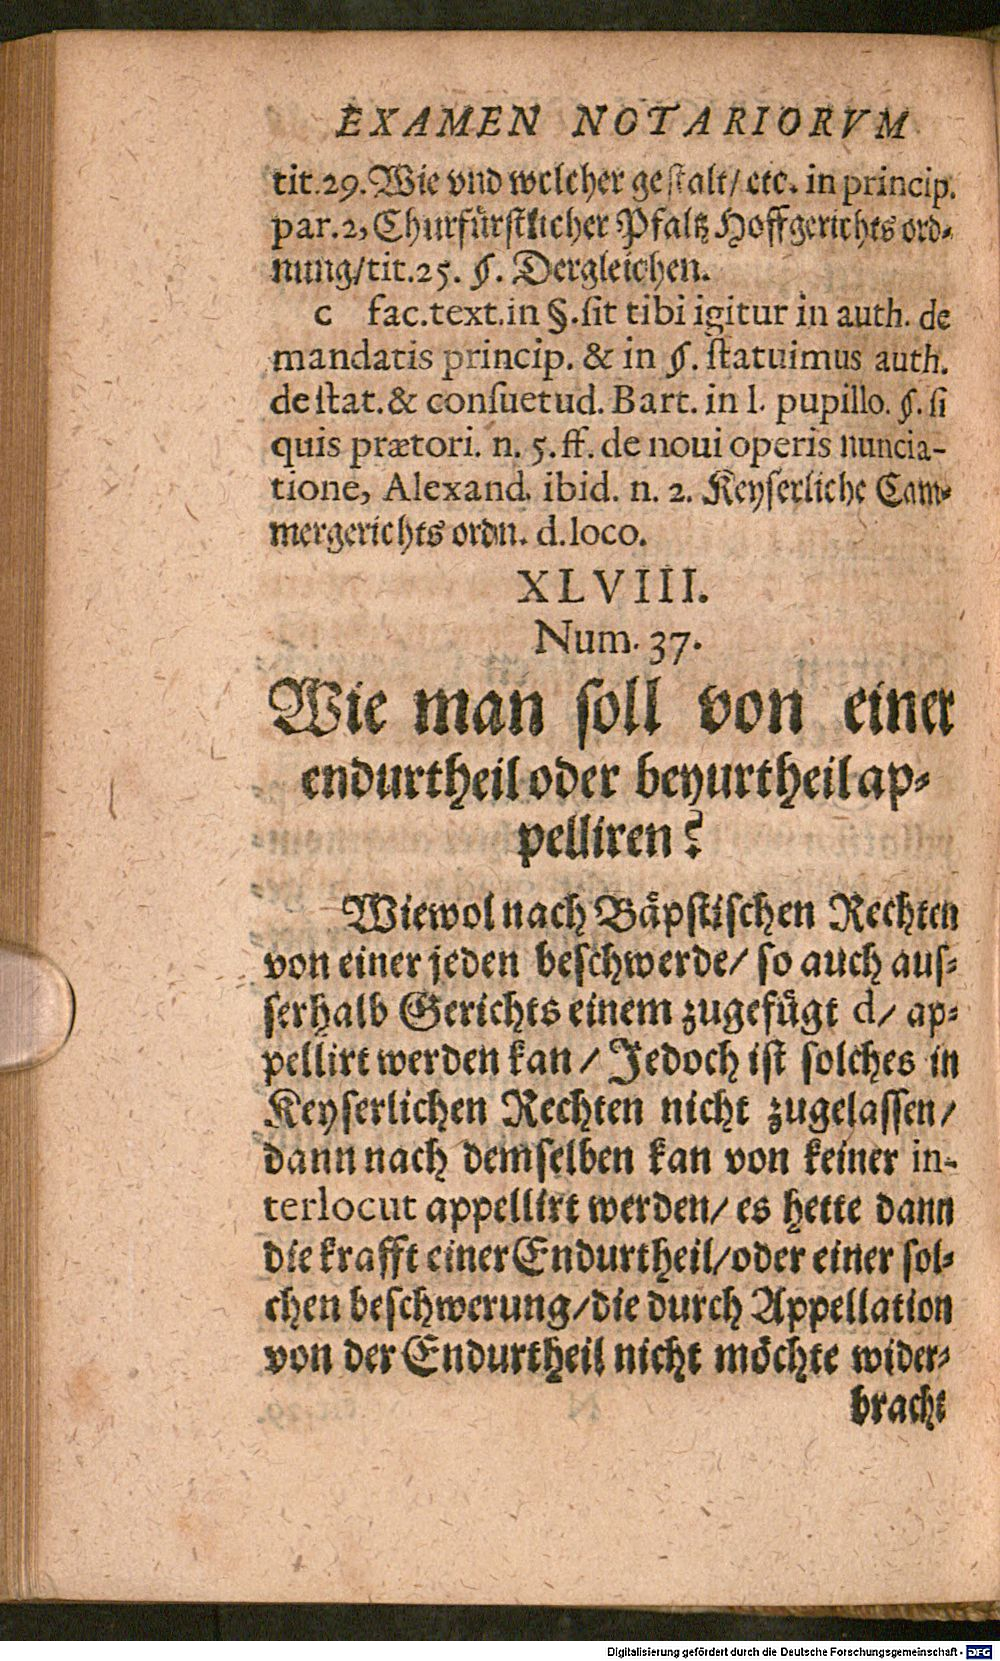 EXAMEN NOTARIORVM
tit.29. Wie vnd welcher gestalt/ etc. in princip.
par.2, Churfürstlicher Pfaltz Hoffgerichts ord-
nung/tit.25. §. Dergleichen.
c fac.text.in §.sit tibi igitur in auth. de
mandatis princip. & in §. statuimus auth.
de stat. & consuetud. Bart. in l. pupillo. §. si
quis prætori. n. 5. ff. de noui operis nuncia-
tione, Alexand. ibid. n. 2. Keyserliche Cam-
mergerichts ordn. d.loco.
XLVIII.
Num. 37.
Wie man soll von einer
endurtheil oder beyurtheil ap-
pelliren?
Wiewol nach Bäpstischen Rechten
von einer jeden beschwerde/ so auch aus-
serhalb Gerichts einem zugefügt d/ ap-
pellirt werden kan/ Jedoch ist solches in
Keyserlichen Rechten nicht zugelassen/
dann nach demselben kan von keiner in-
terlocut appellirt werden/ es hette dann
die krafft einer Endurtheil/oder einer sol-
chen beschwerung/die durch Appellation
von der Endurtheil nicht möchte wider-
bracht
Digitalisierung gefördert durch die Deutsche Forschungsgemeinschaft - DFG